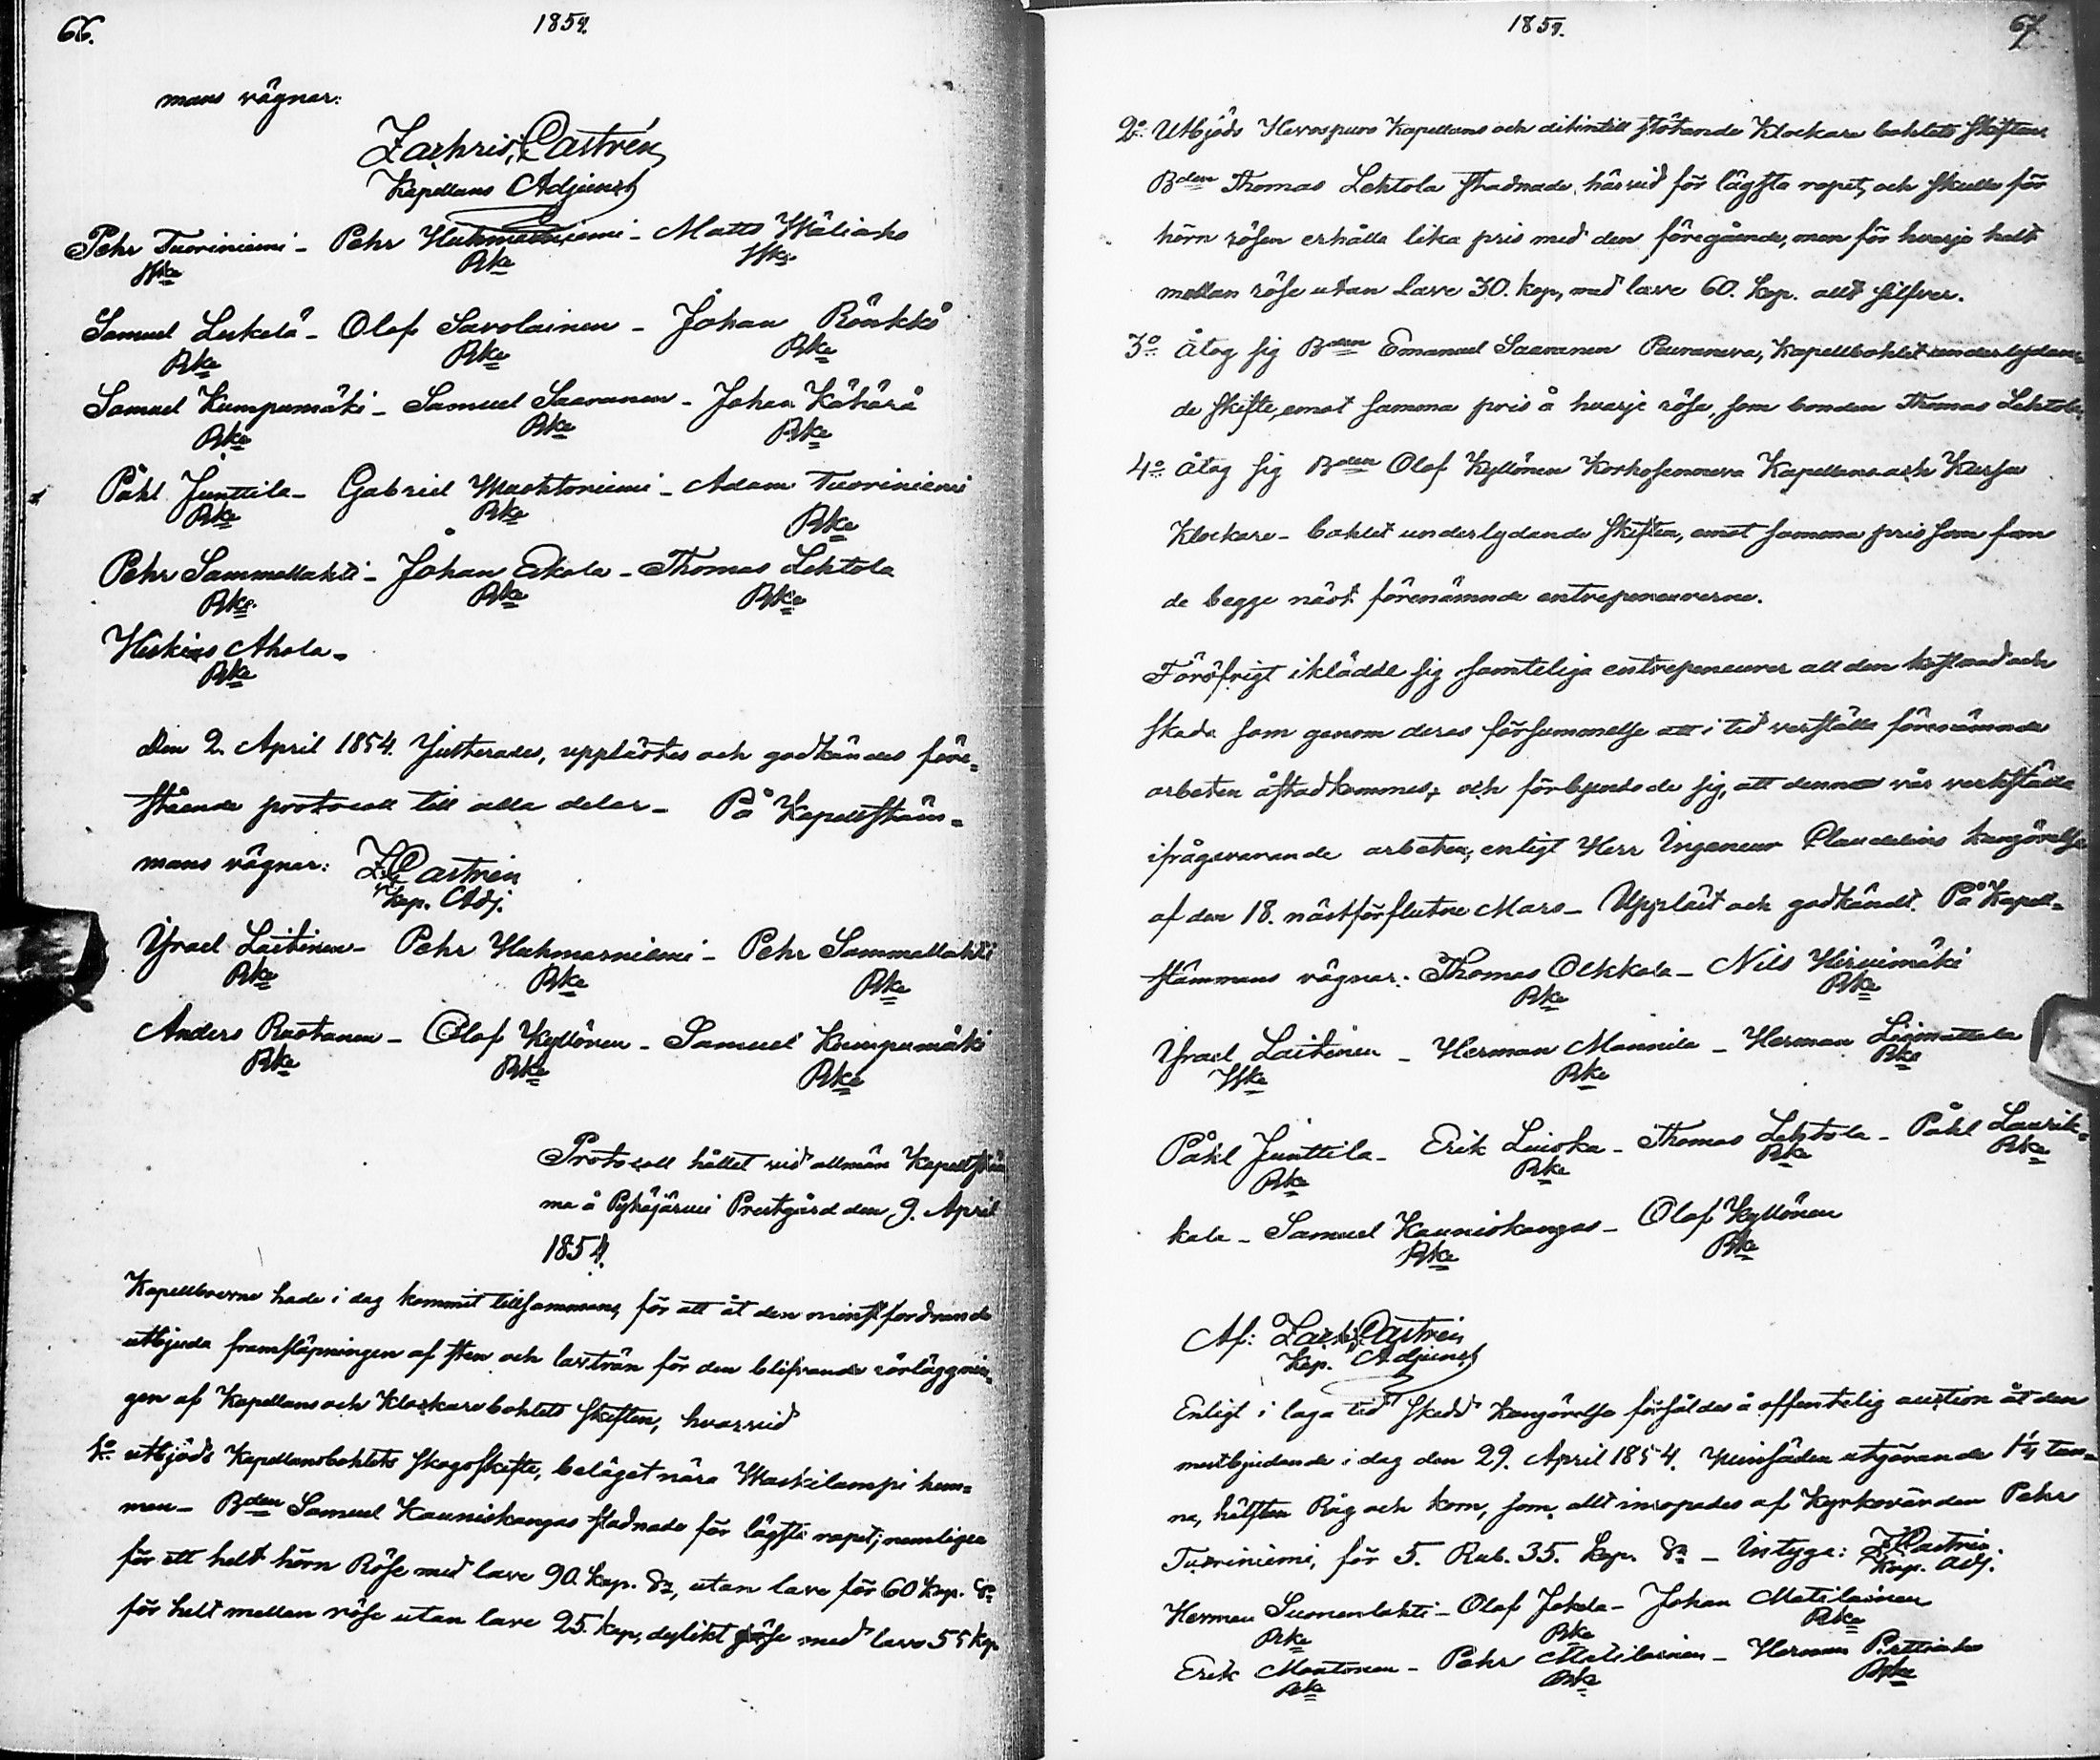 66.
1854.
mans vägnar:
Zachris Castrén
Kapellans Adjunct
Pehr Tuoriniemi - Pehr Huhmarniemi - Matts Wäliaho
Rke Rke
Samuel Leskelä - Olof Savolainen - Johan Rönkkö
Rke Rke Rke
Samuel Kumpumäki - Samuel Saaranen - Johan Kähärä
Rke Rke Rke
Påhl Junttila - Gabriel - Adam Tuoriniemi
Rke Rke Rke
Pehr Sammallahti - Johan Eskola - Thomas Lehtola
Rke Rke Rke
Ahola -
Rke
Den 2. April 1854. Justerades, upplästes och godkändes före=
stående protocoll till alla delar - På Kapellstäm=
mans vägnar: Z. Castrén
Kap. Adj.
Ysrael Laitinen - Pehr Huhmarniemi - Pehr Sammallahti
Rke Rke Rke
Anders Rastanen - Olof Kyllönen - Samuel Kumpumäki
Rke Rke Rke
Protocoll hållet vid allmän Kapellstäm
ma å Pyhäjärvi Prestgård den 9. April
1854.
Kapellboerne hade i dag kommit tillsammans, för att åt den minstfordrande
utbjuda framsläpningen af sten och lavträn för den blifvande rörläggnin=
gen af Kapellans och Klockarebohlets skiften, hvarvid
1o. utbjöds Kapellansbohlets skogsskifte, beläget nära Waskilampi hem=
man - Bden Samuel Kauniskangas stadnade för lägsta ropet; nemligen
för ett helt hörn Röse med lave 90. kop. Sr, utan lave för 60 kop. Sr
för helt mellan röse utan lave 25. kop, dylikt röse med lave 55 kop
1854.
67.
2o. Utbjöds Hirvaspuro Kapellans och dit intill stötande Klockare bohlets skiften
Bden Thomas Lehtola stadnade härvid för lägsta ropet, och skulle för
hörn rösen erhålla lika pris med den föregående, men för hvarje helt
mellan röse utan lave 30. kop, med lave 60. kop. allt silfver.
3o åtog sig Bden Emanuel Saaranen, Kapellbohlet underlydan=
de skifte, emot samma pris å hvarje röse, som bonden Thomas Lehtola,
4o åtog sig Bden Olof Kyllönen Korhosenneva Kapellans och
Klockare - bohlet underlydande skiften, emot samma pris som
de begge näst förenämnde entrepeneurerne.
Föröfrigt iklädde sig samtelige entrepeneurer all den kostnad och
skada som genom deras försummelse att i tid verställa förenämnde
arbeten åstadkommes, och förbundo de sig, att denna vår verkställa
ifrågavarande arbeten, enligt Herr Ingeneur Claudelins kungörelse
af den 18. nästförflutne Mars - Uppläst och godkändt. På Kapell=
stämmans vägnar: Thomas Olkkola - Nils Hirvimäki
Rke Rke
Ysrael Laitinen - Herman Mannila - Herman Liimattala
Rke Rke
Påhl Junttila - Erik Luioka - Thomas Lehtola - Påhl Laurik=
Rke Rke Rke Rke
kala - Samuel Kauniskangas - Olof Kyllönen
Rke Rke
Af: Zach. Castrén
Kap. Adjunct
Enligt i laga tid skedd kungörelse försåldes å offentelig auction åt den
mestbjudande i dag den 29. April 1854. utgörande 1 1/4 tun=
na, hälften Råg och korn, som allt inropades af Kyrkovärden Pehr
Tuoriniemi, för 5. Rub. 35. kop. Sr - Intyga: Z. Castrén.
Kap. Adj.
Herman Suomenlahti - Olof Jokela - Johan Matilainen
Rke Rke Rke
Erik Montonen - Pehr Matilainen - Herman Perttiaho
Rke Rke Rke